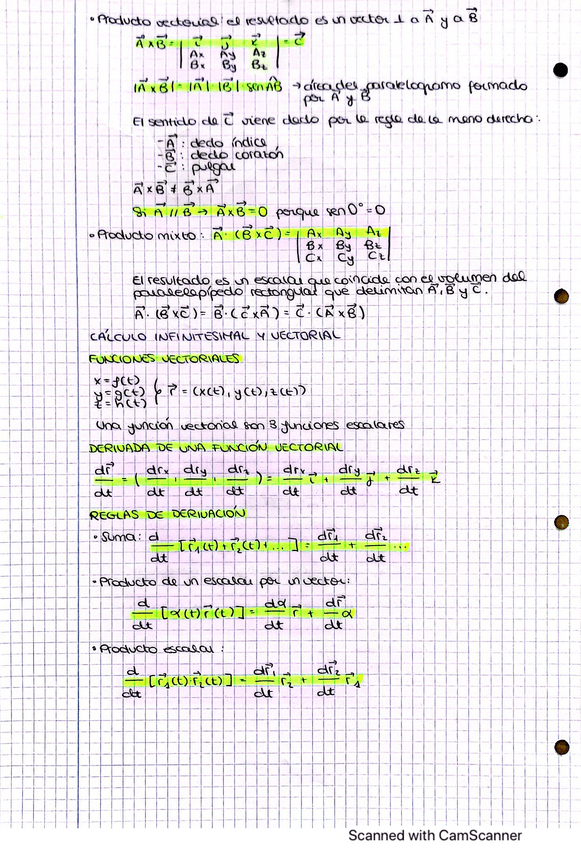 • Producto vectorial: el resultado es un vector ⊥ a A⃗ y a B⃗
A⃗ x B⃗ = | i⃗ j⃗ k⃗ | = C⃗
| Ax Ay Az |
| Bx By Bz |
|A⃗ x B⃗| = |A⃗| |B⃗| sen AB̂ → área del paralelogramo formado
por A⃗ y B⃗
El sentido de C⃗ viene dado por la regla de la mano derecha:
- A⃗ : dedo índice
- B⃗ : dedo corazón
- C⃗ : pulgar
A⃗ x B⃗ ≠ B⃗ x A⃗
Si A⃗ // B⃗ → A⃗ x B⃗ = 0 porque sen 0° = 0
• Producto mixto: A⃗ · (B⃗ x C⃗) = | Ax Ay Az |
| Bx By Bz |
| Cx Cy Cz |
El resultado es un escalar que coincide con el volumen del
paralelepípedo rectangular que delimitan A⃗, B⃗ y C⃗.
A⃗ · (B⃗ x C⃗) = B⃗ · (C⃗ x A⃗) = C⃗ · (A⃗ x B⃗)
CÁLCULO INFINITESIMAL Y VECTORIAL
FUNCIONES VECTORIALES
x = f(t)
y = g(t) } r⃗ = (x(t), y(t), z(t))
z = h(t)
Una función vectorial son 3 funciones escalares
DERIVADA DE UNA FUNCIÓN VECTORIAL
dr⃗/dt = (drx/dt, dry/dt, drz/dt) = drx/dt i⃗ + dry/dt j⃗ + drz/dt k⃗
REGLAS DE DERIVACIÓN
• Suma: d/dt [r⃗1(t) + r⃗2(t) + ...] = dr⃗1/dt + dr⃗2/dt ...
• Producto de un escalar por un vector:
d/dt [α(t) r⃗(t)] = dα/dt r⃗ + dr⃗/dt α
• Producto escalar:
d/dt [r⃗1(t) r⃗2(t)] = dr⃗1/dt r⃗2 + dr⃗2/dt r⃗1
Scanned with CamScanner